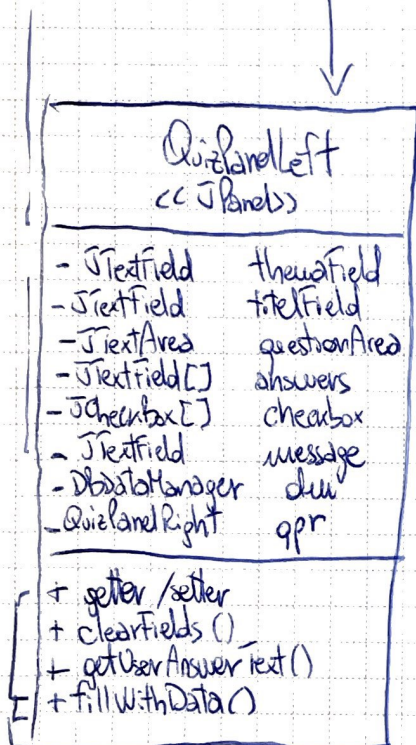 QuizPanelLeft
<<JPanel>>
- JTextField themaField
- JTextField titelField
- JTextArea questionArea
- JTextField[] answers
- JCheckbox[] checkbox
- JTextField message
- DbDataManager dm
- QuizPanelRight qpr
+ getter/setter
+ clearFields()
+ getUserAnswerText()
+ fillWithData()